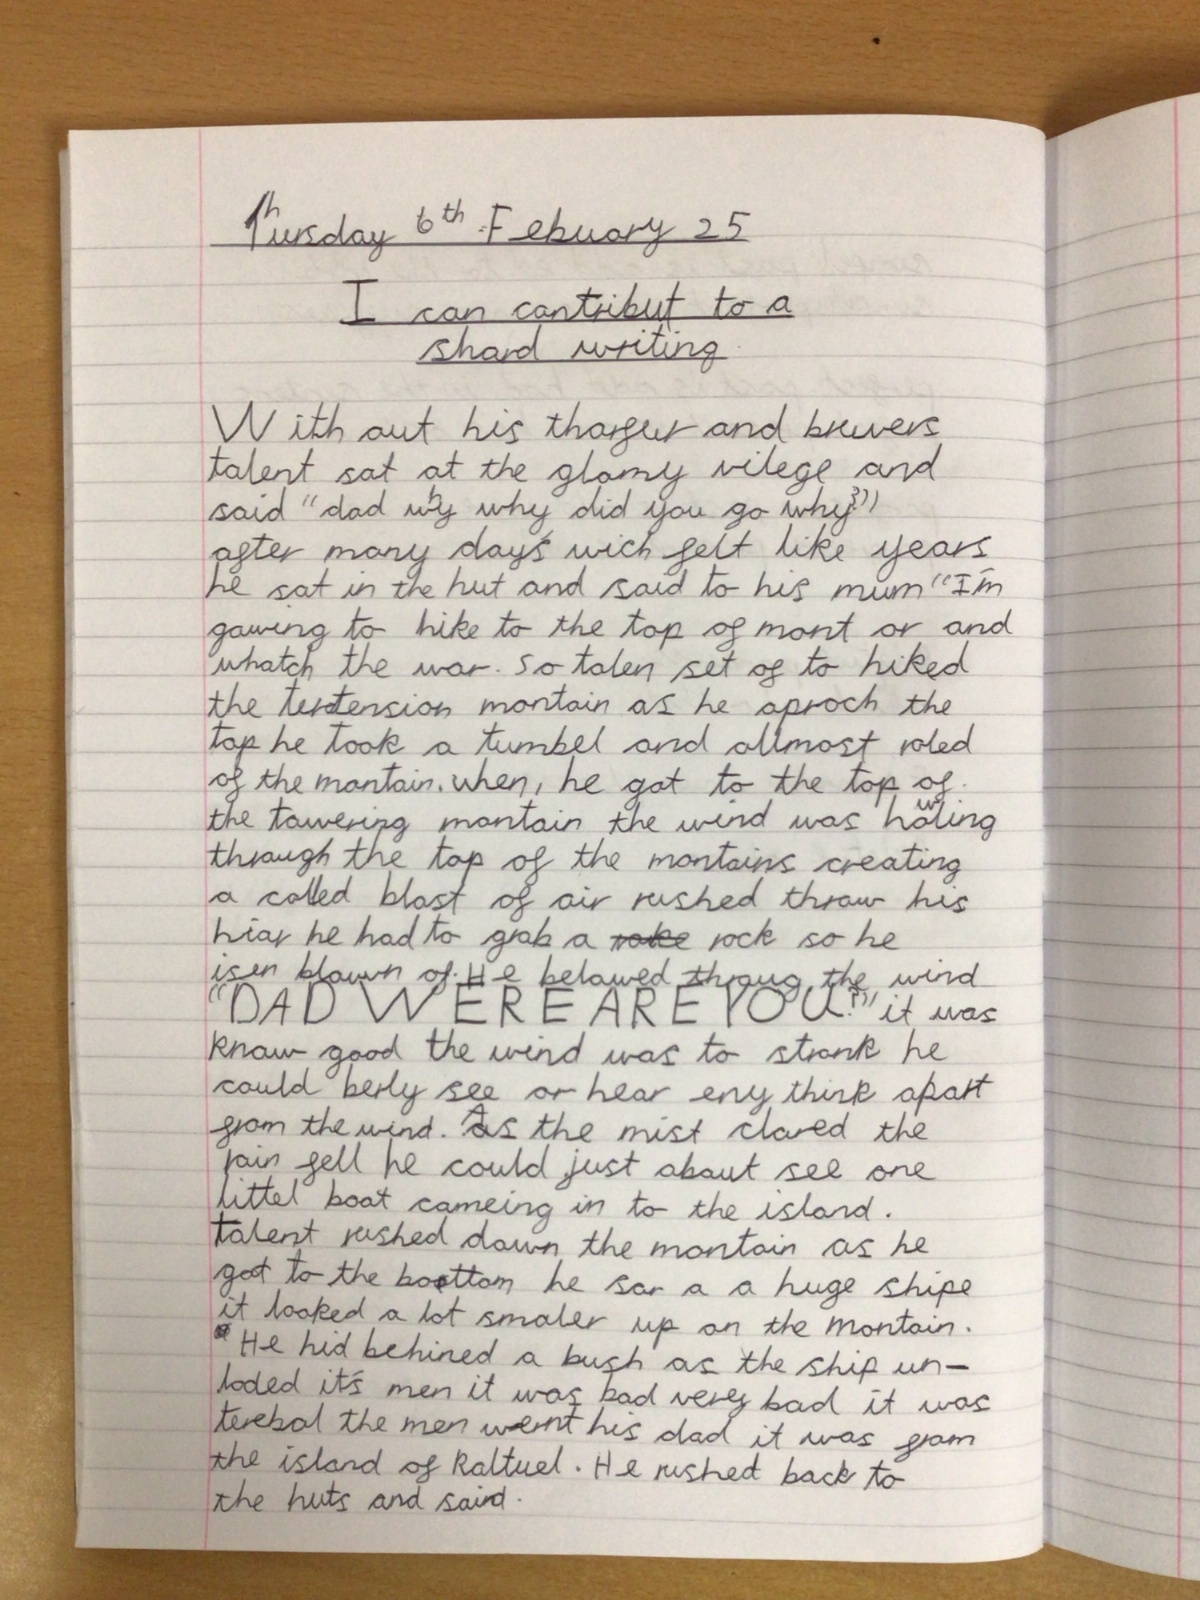 Thursday 6th Febuary 25
I can contribut to a
shard writing
With out his tharfur and bruvers
talent sat at the glomy vilege and
said "dad why why did you go why?"
after many days wich felt like years
he sat in the hut and said to his mum "I'm
gowing to hike to the top of mont or and
whatch the war. So talen set of to hiked
the tertension montain as he aproch the
top he took a tumbel and allmost roled
of the montain. when, he got to the top of
the towering montain the wind was howling
through the top of the montains creating
a colled blast of air rushed throw his
hiar he had to grab a rock so he
isen blown of. He belowed throug the wind
"DAD WERE ARE YOU!?" it was
know good the wind was to stronk he
could berly see or hear eny think apart
from the wind. As the mist clared the
rain fell he could just about see one
littel boat comeing in to the island.
talent rushed down the montain as he
got to the bottom he sor a a huge shipe
it looked a lot smaler up on the montain.
He hid behined a bush as the ship un-
loded it's men it was bad very bad it was
terebal the men wernt his dad it was from
the island of Raltuel. He rushed back to
the huts and said.